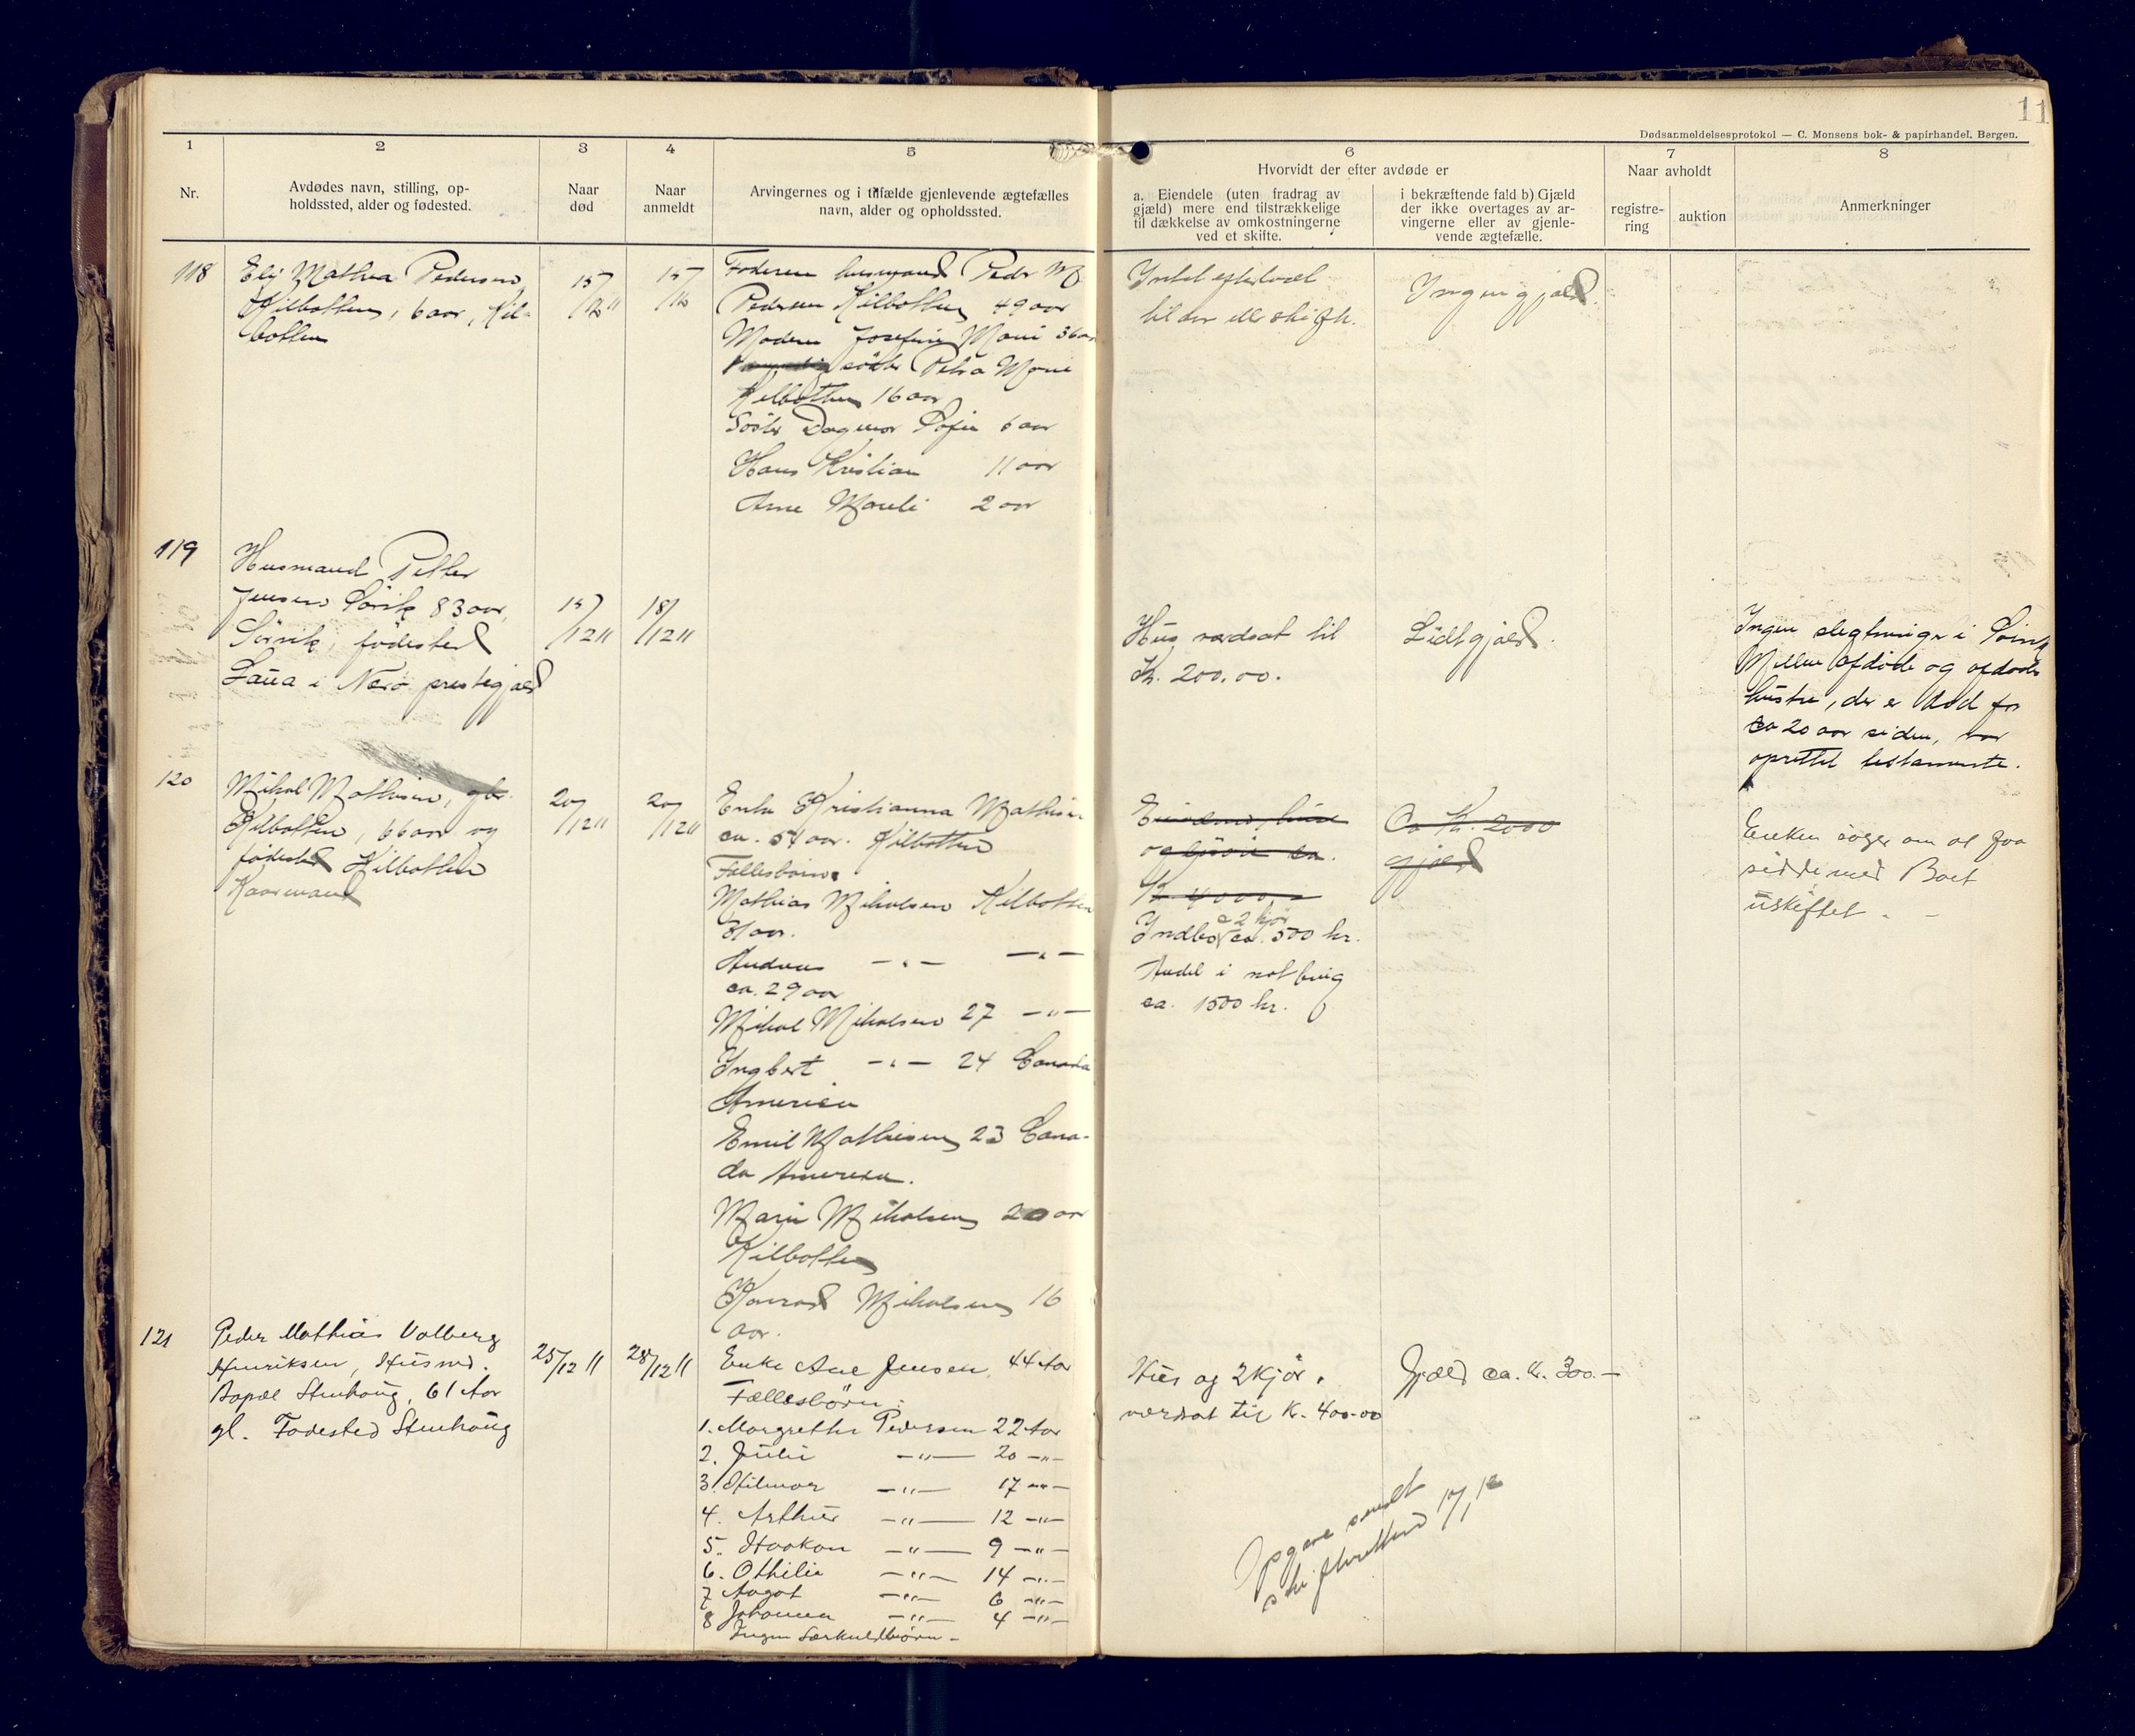 11
Dødsanmeldelsesprotokol — C. Monsens bok- & papirhandel, Bergen.
1
2
3
4
5
6
7
8
Nr.
Avdødes navn, stilling, op-
holdssted, alder og fødested.
Naar
død
Naar
anmeldt
Arvingernes og i tilfælde gjenlevende ægtefælles
navn, alder og opholdssted.
Hvorvidt der efter avdøde er
a. Eiendele (uten fradrag av
gjæld) mere end tilstrækkelige
til dækkelse av omkostningerne
ved et skifte.
i bekræftende fald b) Gjæld
der ikke overtages av ar-
vingerne eller av gjenle-
vende ægtefælle.
Naar avholdt
registre-
ring
auktion
Anmerkninger
118
Eli Mathea Pedersen,
Kilbotten, 6 aar, Kil-
botten
15/
/12 11
15/
/12
Faderen husmand Peder M
Pedersen Kilbotten 49 aar
Moderen Josefine Marie 36 aar
søster Petra Marie
Kilbotten 16 aar
Søster Dagmar Sofie 6 aar
Hans Kristian 11 aar
Arne Mauli 2 aar
Intet efterladt
til arv eller skifte.
Ingen gjæld.
119
Husmand Petter
Jensen Sørvik 83 aar,
Sørvik, fødested
Laua i Nærø prestegjæld
15/
/12 11
18/
/12 11
Hus værdsat til
Kr. 200.00.
Lidt gjæld.
Ingen slegtninge i Sørvik
Mellem afdøde og afdødes
hustru, der er død for
ca 20 aar siden, var
oprettet testamente.
120
Mikal Mathisen, gbr.
Kilbotten, 66 aar og
fødested Kilbotten
Kaarmand
20/
/12 11
20/
/12 11
Enke Kristianna Mathisen
ca. 54 aar. Kilbotten
Fællesbørn.
Mathias Mikalsen Kilbotten
31 aar.
Andreas — " — — " —
ca. 29 aar
Mikal Mikalsen 27 — " —
Ingbert — " — 24 Canada
America
Emil Mathisen 23 Cana-
da America.
Marie Mikalsen 20 aar
Kilbotten
Konrad Mikalsen 16
aar.
Eiendom, huse
og løsøre ca.
Kr. 4000.-
a 2 kjør
Indbo ca. 500 kr.
Andel i notbrug
ca. 1500 kr.
Ca Kr. 2000
gjæld
Enken søger om at faa
sidde med Boet
uskiftet. -
121
Peder Mathias Valberg
Henriksen, Husmd.
Bopæl Stenhaug, 61 Aar
gl. Fødested Stenhaug
25/12 11
28/12 11
Enke Ane Jensen. 44 Aar
Fællesbørn:
1. Margrethe Pedersen 22 Aar
2. Julie — " — 20 — " —
3. Hilmar — " — 17 — " —
4. Arthur — " — 12 — " —
5. Haakon — " — 9 — " —
6. Othilie — " — 14 — " —
7 Aagot — " — 6 — " —
8 Johanna — " — 4 — " —
Ingen Særkuldbørn -
Hus og 2 Kjør.
værdsat til K. 400-00
Gjæld ca. Kr. 300.—
Opgave sendt
skifteretten